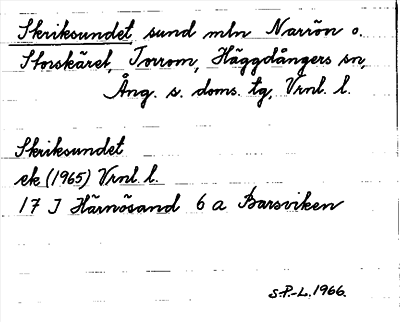 Skriksundet, sund mln Nariön o.
Storskäret, Torrom, Häggdångers sn,
Ång. s. doms. tg, Vrnl. l.
Skriksundet
ek (1965) Vrnl. l.
17 J Härnösand 6 a Barsviken
S.P.-L. 1966.